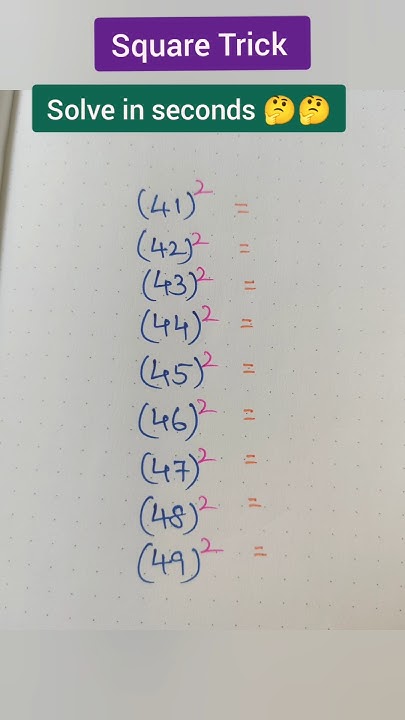 Square Trick
Solve in seconds 🤔🤔
(41)² =
(42)² =
(43)² =
(44)² =
(45)² =
(46)² =
(47)² =
(48)² =
(49)² =